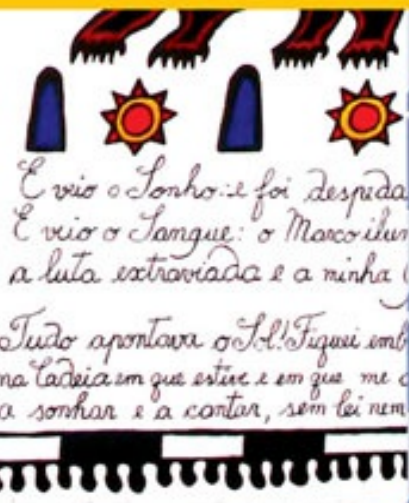 E veio o Sonho: e foi despeda
E veio o Sangue: o Marco ilum
a luta extraviada e a minha
Tudo apontava o Sol! Fiquei emb
na Cadeia em que estive e em que me
a sonhar e a cantar, sem lei nem